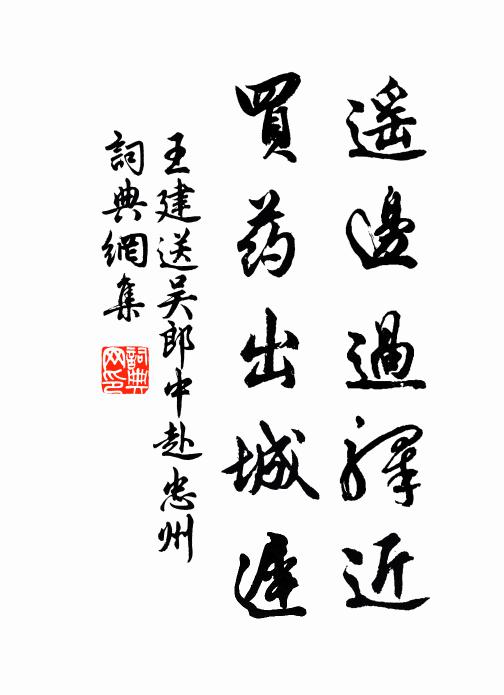 遥邊過驛近
買药出城遲
王建送吴郎中赴忠州
詞典網集
詞典网印